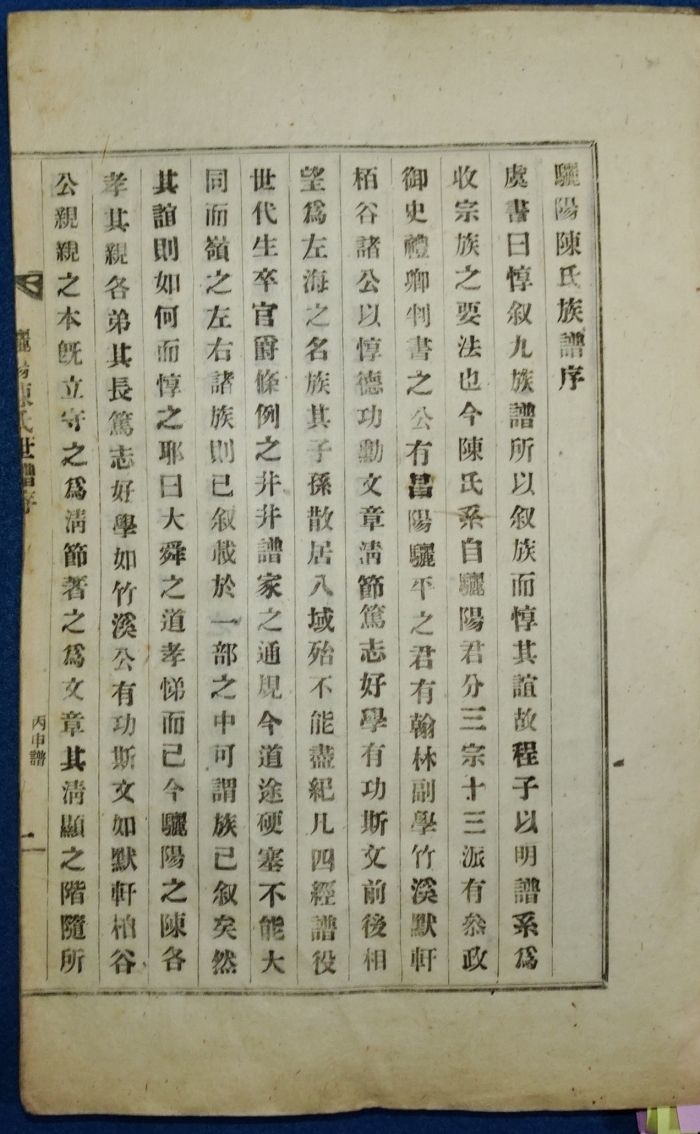 驪陽陳氏族譜序
虞書曰惇叙九族譜所以叙族而惇其誼故程子以明譜系爲
收宗族之要法也今陳氏系自驪陽君分三宗十三派有叅政
御史禮卿判書之公有昌陽驪平之君有翰林副學竹溪默軒
栢谷諸公以惇德功勳文章淸節篤志好學有功斯文前後相
望爲左海之名族其子孫散居八域殆不能盡紀凡四經譜役
世代生卒官爵條例之井井譜家之通規今道途硬塞不能大
同而嶺之左右諸族則已叙載於一部之中可謂族已叙矣然
其誼則如何而惇之耶曰大舜之道孝悌而已今驪陽之陳各
孝其親各弟其長篤志好學如竹溪公有功斯文如默軒栢谷
公親親之本旣立守之爲淸節著之爲文章其淸顯之階隨所
驪陽陳氏世譜序
丙申譜
一